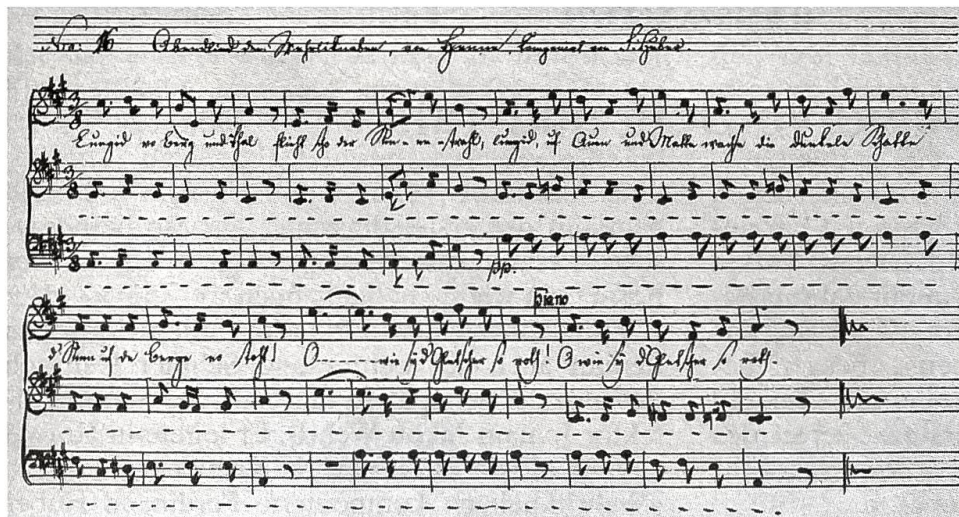 Nro: 16 Abendlied der Wehrliknaben, von Henne, Componirt von F. Huber.
Luegid vo Berg und Thal flieht scho der Sun-ne-strahl, luegid, uf Auen und Matte wachse die dunkele Schatte
pp.
Piano
d'Sunn uf de Berge no stoht! O------wie sy d'Gletscher so roth! O wie sy d'Gletscher so roth.